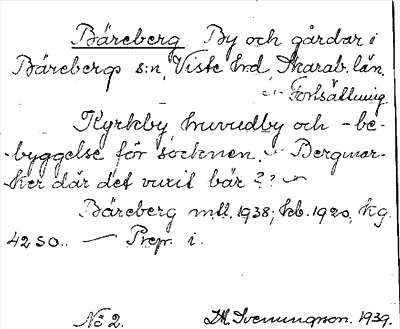 Bäreberg By och gårdar i
Bärebergs s:n, Viste hrd, Skarab. län.
— Fortsättning.
Kyrkby, huvudby och -be-
byggelse för socknen. — Bergmar-
ker där det vuxit bär?? —
Bäreberg mtl. 1938; kb. 1920, kg.
4250. — Prep. i.
No 2. Svenungson. 1939.